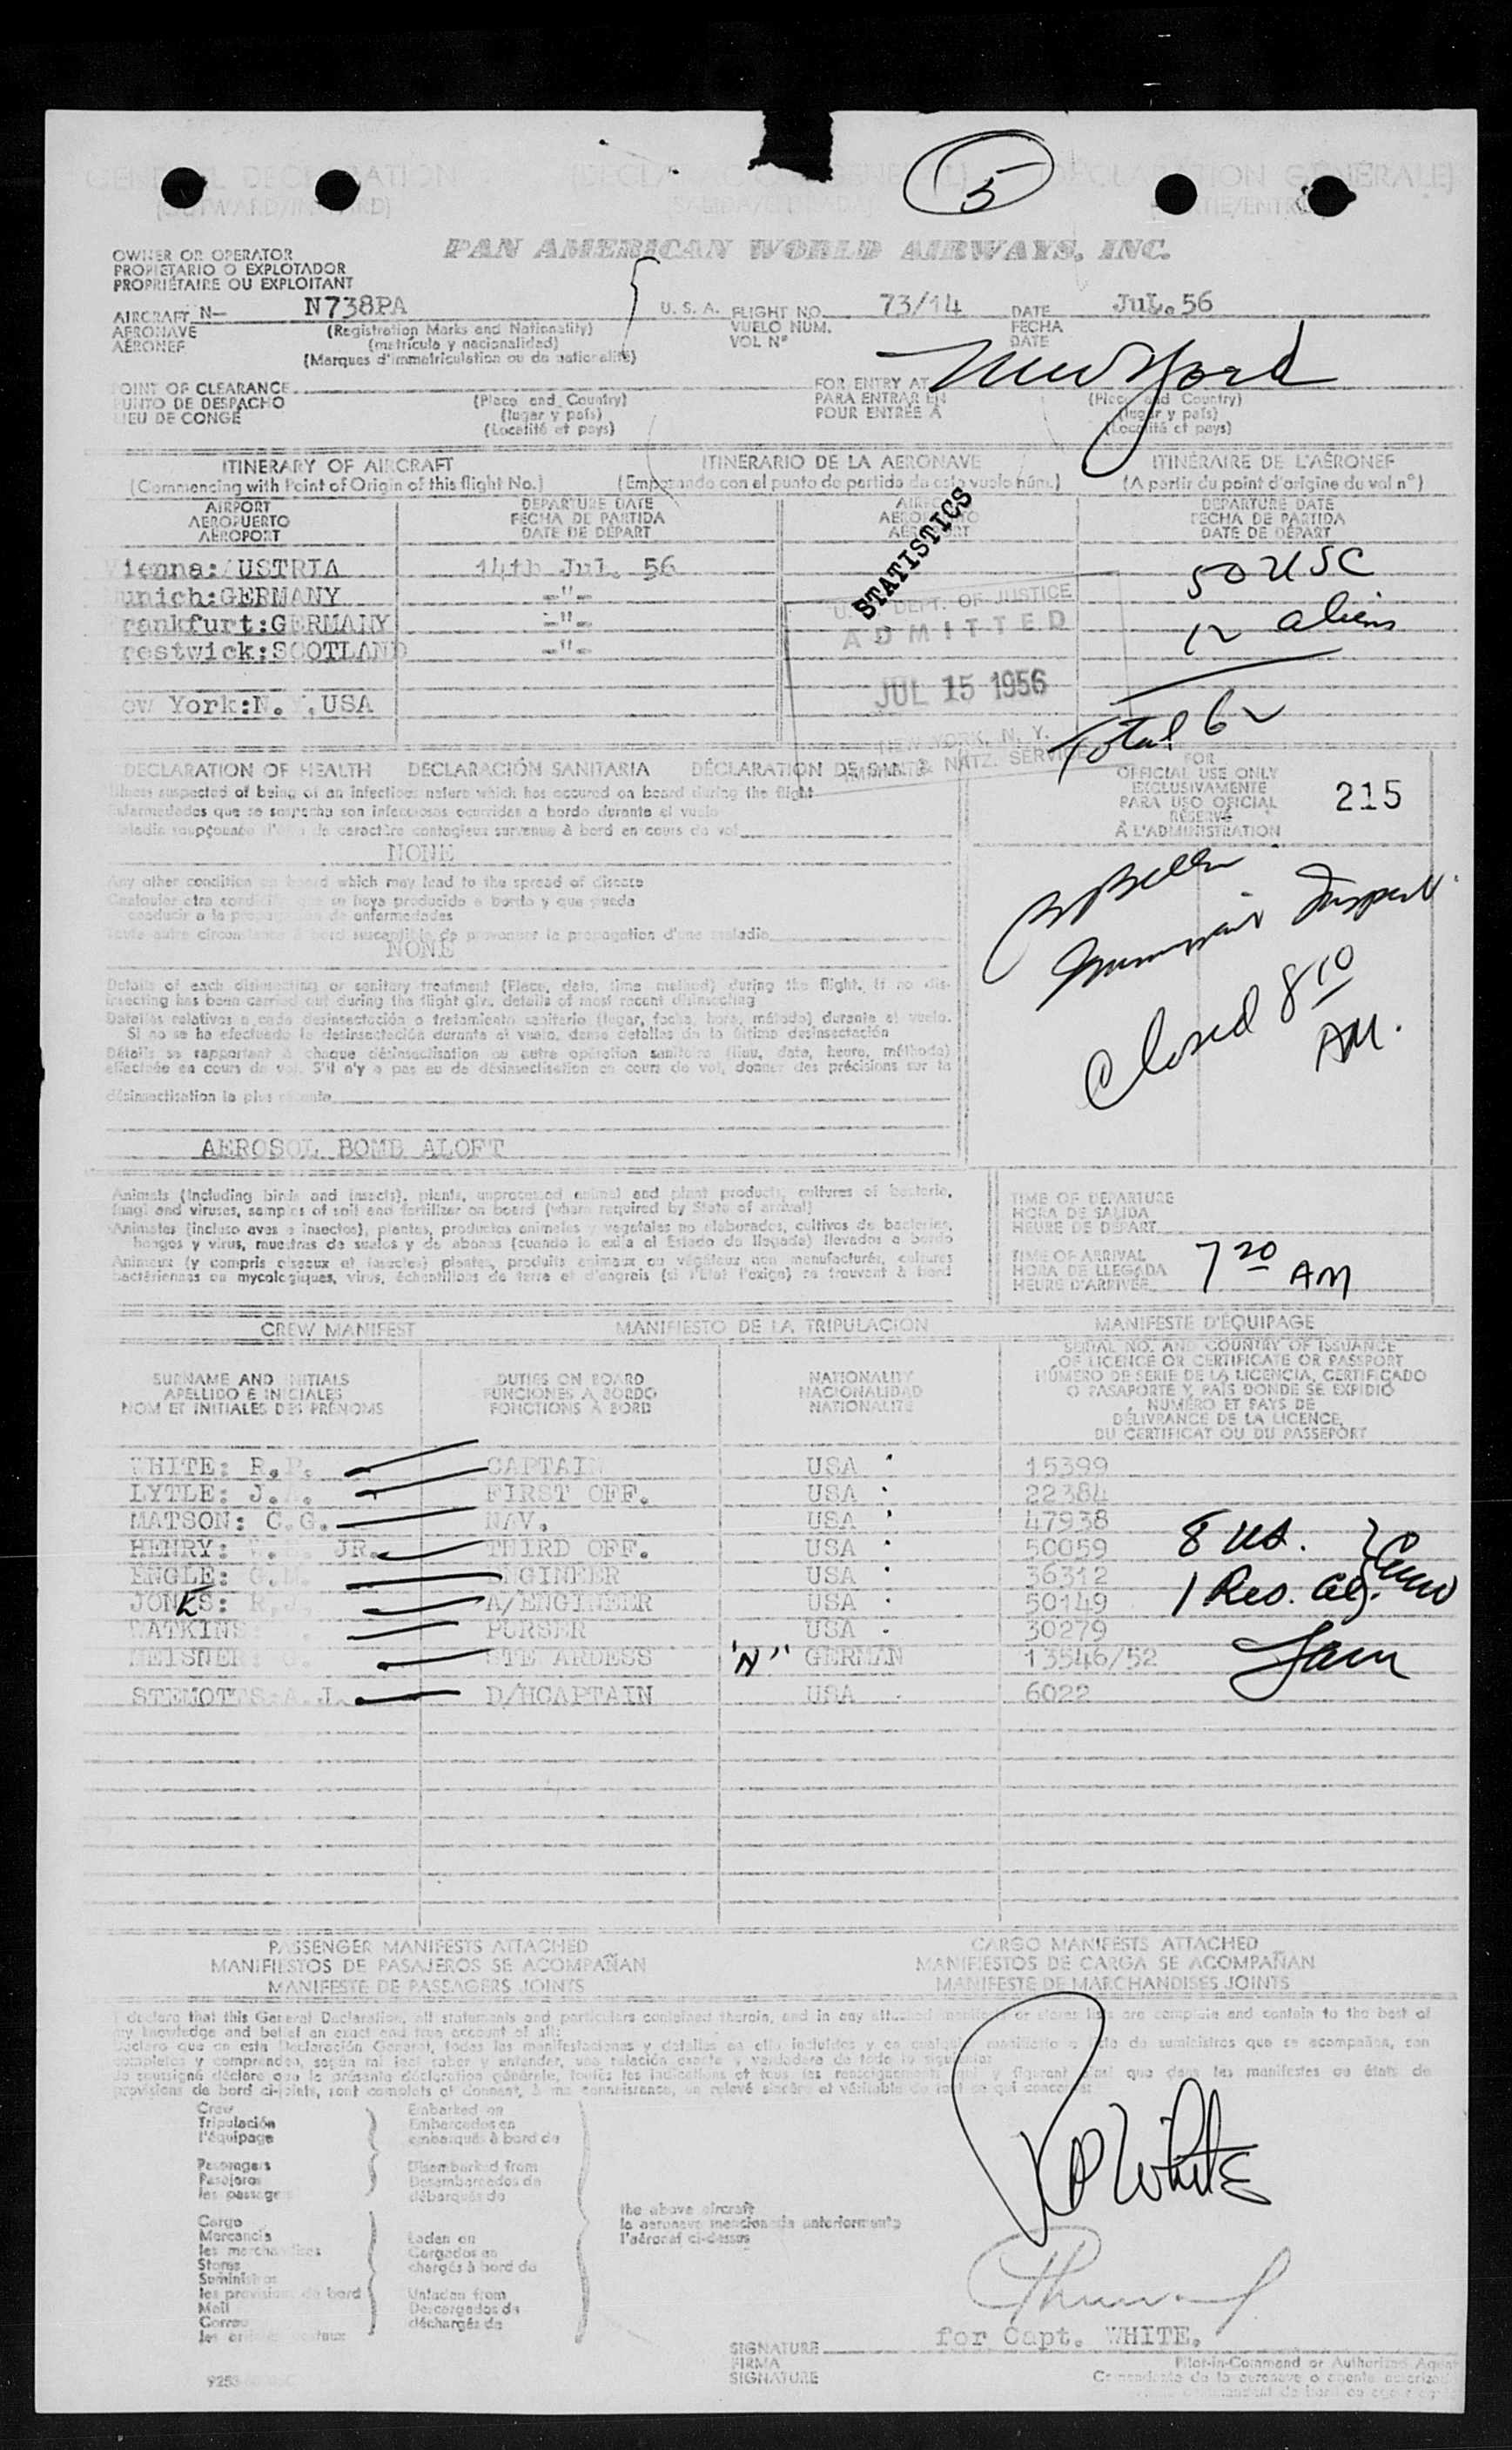 GENERAL DECLARATION (DECLARACION GENERAL) (DECLARATION GÉNÉRALE)
(OUTWARD/INWARD) SALIDA/ENTRADA)
5
PAN AMERICAN WORLD AIRWAYS, INC.
OWNER OR OPERATOR
PROPIETARIO O EXPLOTADOR
PROPRIÉTAIRE OU EXPLOITANT
AIRCRAFT N— N738PA U. S. A. FLIGHT NO. 73/14 DATE JuL. 56
AERONAVE (Registration Marks and Nationality) VUELO NUM. FECHA
AÉRONEF (matrícula y nacionalidad) VOL N° DATE
(Marques d'immatriculation ou de nationalité)
POINT OF CLEARANCE FOR ENTRY AT New York
PUNTO DE DESPACHO (Place and Country) PARA ENTRAR EN (Place and Country)
LIEU DE CONGÉ (lugar y país) POUR ENTRÉE À (lugar y país)
(Localité et pays) (Localité et pays)
ITINERARY OF AIRCRAFT ITINERARIO DE LA AERONAVE ITINÉRAIRE DE L'AÉRONEF
(Commencing with Point of Origin of this flight No.) (Empezando con el punto de partida de este vuelo núm.) (A partir du point d'origine du vol n°)
AIRPORT DEPARTURE DATE AIRPORT DEPARTURE DATE
AEROPUERTO FECHA DE PARTIDA AEROPUERTO FECHA DE PARTIDA
AÉROPORT DATE DE DÉPART AÉROPORT DATE DE DÉPART
STATISTICS
Vienna: USTRIA 14th Jul. 56 50 USC
unich:GERMANY -"-
rankfurt:GERMANY -"- 12 aliens
restwick:SCOTLAND -"-
ew York:N. .USA
U. S. DEPT. OF JUSTICE
ADMITTED
JUL 15 1956
NEW YORK, N. Y.
IMM. & NATZ. SERVICE
Total 62
DECLARATION OF HEALTH DECLARACIÓN SANITARIA DÉCLARATION DE SANTÉ
Illness suspected of being of an infectious nature which has occured on board during the flight
Enfermedades que se sospecha son infecciosas ocurridas a bordo durante el vuelo
Maladie soupçonnée d'être de caractère contagieux survenue à bord en cours de vol
NONE
FOR
OFFICIAL USE ONLY
EXCLUSIVAMENTE
PARA USO OFICIAL
RÉSERVÉ
À L'ADMINISTRATION
215
Any other condition on board which may lead to the spread of disease
Cualquier otra condición que se haya producido a bordo y que pueda
conducir a la propagación de enfermedades
Toute autre circonstance à bord susceptible de provoquer la propagation d'une maladie
NONE
Closed 8 10
AM.
Details of each disinsecting or sanitary treatment (Place, date, time method) during the flight. If no dis-
insecting has been carried out during the flight give details of most recent disinsecting
Detalles relativos a cada desinsectación o tratamiento sanitario (lugar, fecha, hora, método) durante el vuelo.
Si no se ha efectuado la desinsectación durante el vuelo, dense detalles de la última desinsectación
Détails se rapportant à chaque désinsectisation ou autre opération sanitaire (lieu, date, heure, méthode)
effectuée en cours de vol. S'il n'y a pas eu de désinsectisation en cours de vol, donner des précisions sur la
désinsectisation la plus récente
AEROSOL BOMB ALOFT
Animals (including birds and insects), plants, unprocessed animal and plant products, cultures of bacteria,
fungi and viruses, samples of soil and fertilizer on board (where required by State of arrival)
Animales (incluso aves e insectos), plantas, productos animales y vegetales no elaborados, cultivos de bacterias,
hongos y virus, muestras de suelos y de abonos (cuando lo exija el Estado de llegada) llevados a bordo
Animaux (y compris oiseaux et insectes) plantes, produits animaux ou végétaux non manufacturés, cultures
bactériennes ou mycologiques, virus, échantillons de terre et d'engrais (si l'Etat l'exige) se trouvant à bord
TIME OF DEPARTURE
HORA DE SALIDA
HEURE DE DÉPART
TIME OF ARRIVAL
HORA DE LLEGADA
HEURE D'ARRIVÉE
7 20 AM
CREW MANIFEST MANIFIESTO DE LA TRIPULACION MANIFESTE D'ÉQUIPAGE
SURNAME AND INITIALS DUTIES ON BOARD NATIONALITY
APELLIDO E INICIALES FUNCIONES A BORDO NACIONALIDAD
NOM ET INITIALES DES PRÉNOMS FONCTIONS À BORD NATIONALITÉ
SERIAL NO. AND COUNTRY OF ISSUANCE
OF LICENCE OR CERTIFICATE OR PASSPORT
NÚMERO DE SERIE DE LA LICENCIA, CERTIFICADO
O PASAPORTE Y PAÍS DONDE SE EXPIDIÓ
NUMÉRO ET PAYS DE
DÉLIVRANCE DE LA LICENCE,
DU CERTIFICAT OU DU PASSEPORT
WHITE: R.P. CAPTAIN USA 15399
LYTLE: J. FIRST OFF. USA 22384
MATSON: C.G. NAV. USA 47938
HENRY: JR. THIRD OFF. USA 50059
ENGLE: G.M. ENGINEER USA 36312
JONES: R.J. A/ENGINEER USA 50149
WATKINS PURSER USA 30279
MEISNER: G. STE ARDESS "N" GERMAN 13546/52
STEMOTTS:A.J. D/HCAPTAIN USA 6022
8 US.
1 Res. al. Crew
PASSENGER MANIFESTS ATTACHED CARGO MANIFESTS ATTACHED
MANIFIESTOS DE PASAJEROS SE ACOMPAÑAN MANIFIESTOS DE CARGA SE ACOMPAÑAN
MANIFESTE DE PASSAGERS JOINTS MANIFESTE DE MARCHANDISES JOINTS
I declare that this General Declaration, all statements and particulars contained therein, and in any attached manifests or stores lists are complete and contain to the best of
my knowledge and belief an exact and true account of all:
Declaro que en esta Declaración General, todas las manifestaciones y detalles en ella incluidos y en cualquier manifiesto o lista de suministros que se acompañan, son
completos y comprenden, según mi leal saber y entender, una relación exacta y verdadera de todo lo siguiente:
Je soussigné déclare que la présente déclaration générale, toutes les indications et tous les renseignements qui y figurent ainsi que dans les manifestes ou états de
provisions de bord ci-joints, sont complets et donnent, à ma connaissance, un relevé sincère et véritable de tout ce qui concerne:
Crew Embarked on
Tripulación Embarcados en
l'équipage embarqués à bord de
Passengers Disembarked from
Pasajeros Desembarcados de
les passagers débarqués de
the above aircraft
la aeronave mencionada anteriormente
l'aéronef ci-dessus
Cargo
Mercancía Laden on
les marchandises Cargados en
Stores chargés à bord de
Suministros
les provisions de bord Unladen from
Mail Descargados de
Correo déchargés de
RP White
for Capt. WHITE.
SIGNATURE
FIRMA
SIGNATURE
Pilot-in-Command or Authorized Agent
Comandante de la aeronave o agente autorizado
9253